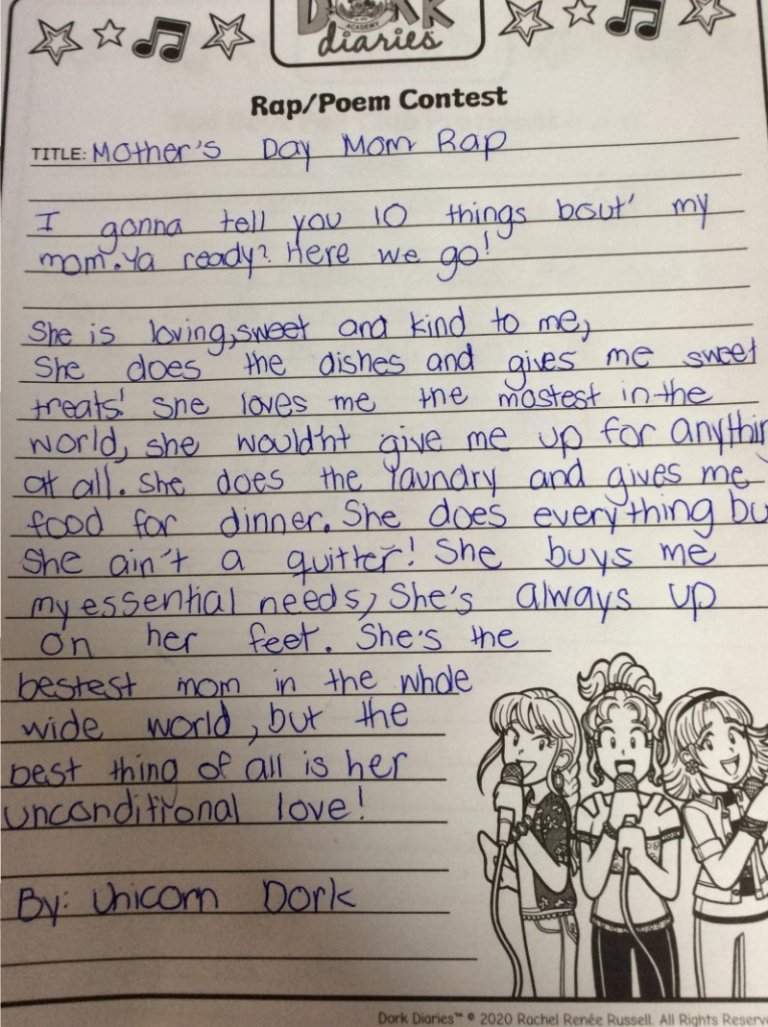 DORK
ACADEMY
diaries
Rap/Poem Contest
TITLE: Mother's Day Mom Rap
I gonna tell you 10 things bout' my
mom. Ya ready? Here we go!
She is loving, sweet and kind to me,
She does the dishes and gives me sweet
treats! She loves me the mostest in the
world, she would'nt give me up for anythin
at all. She does the laundry and gives me
food for dinner. She does everything bu
She ain't a quitter! She buys me
my essential needs, She's always up
on her feet. She's the
bestest mom in the whole
wide world, but the
best thing of all is her
unconditional love!
By: Unicorn Dork
Dork Diaries™ © 2020 Rachel Renée Russell. All Rights Reserve